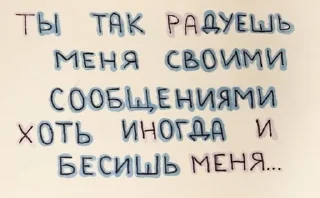 ТЫ ТАК РАДУЕШЬ
МЕНЯ СВОИМИ
СООБЩЕНИЯМИ
ХОТЬ ИНОГДА И
БЕСИШЬ МЕНЯ...